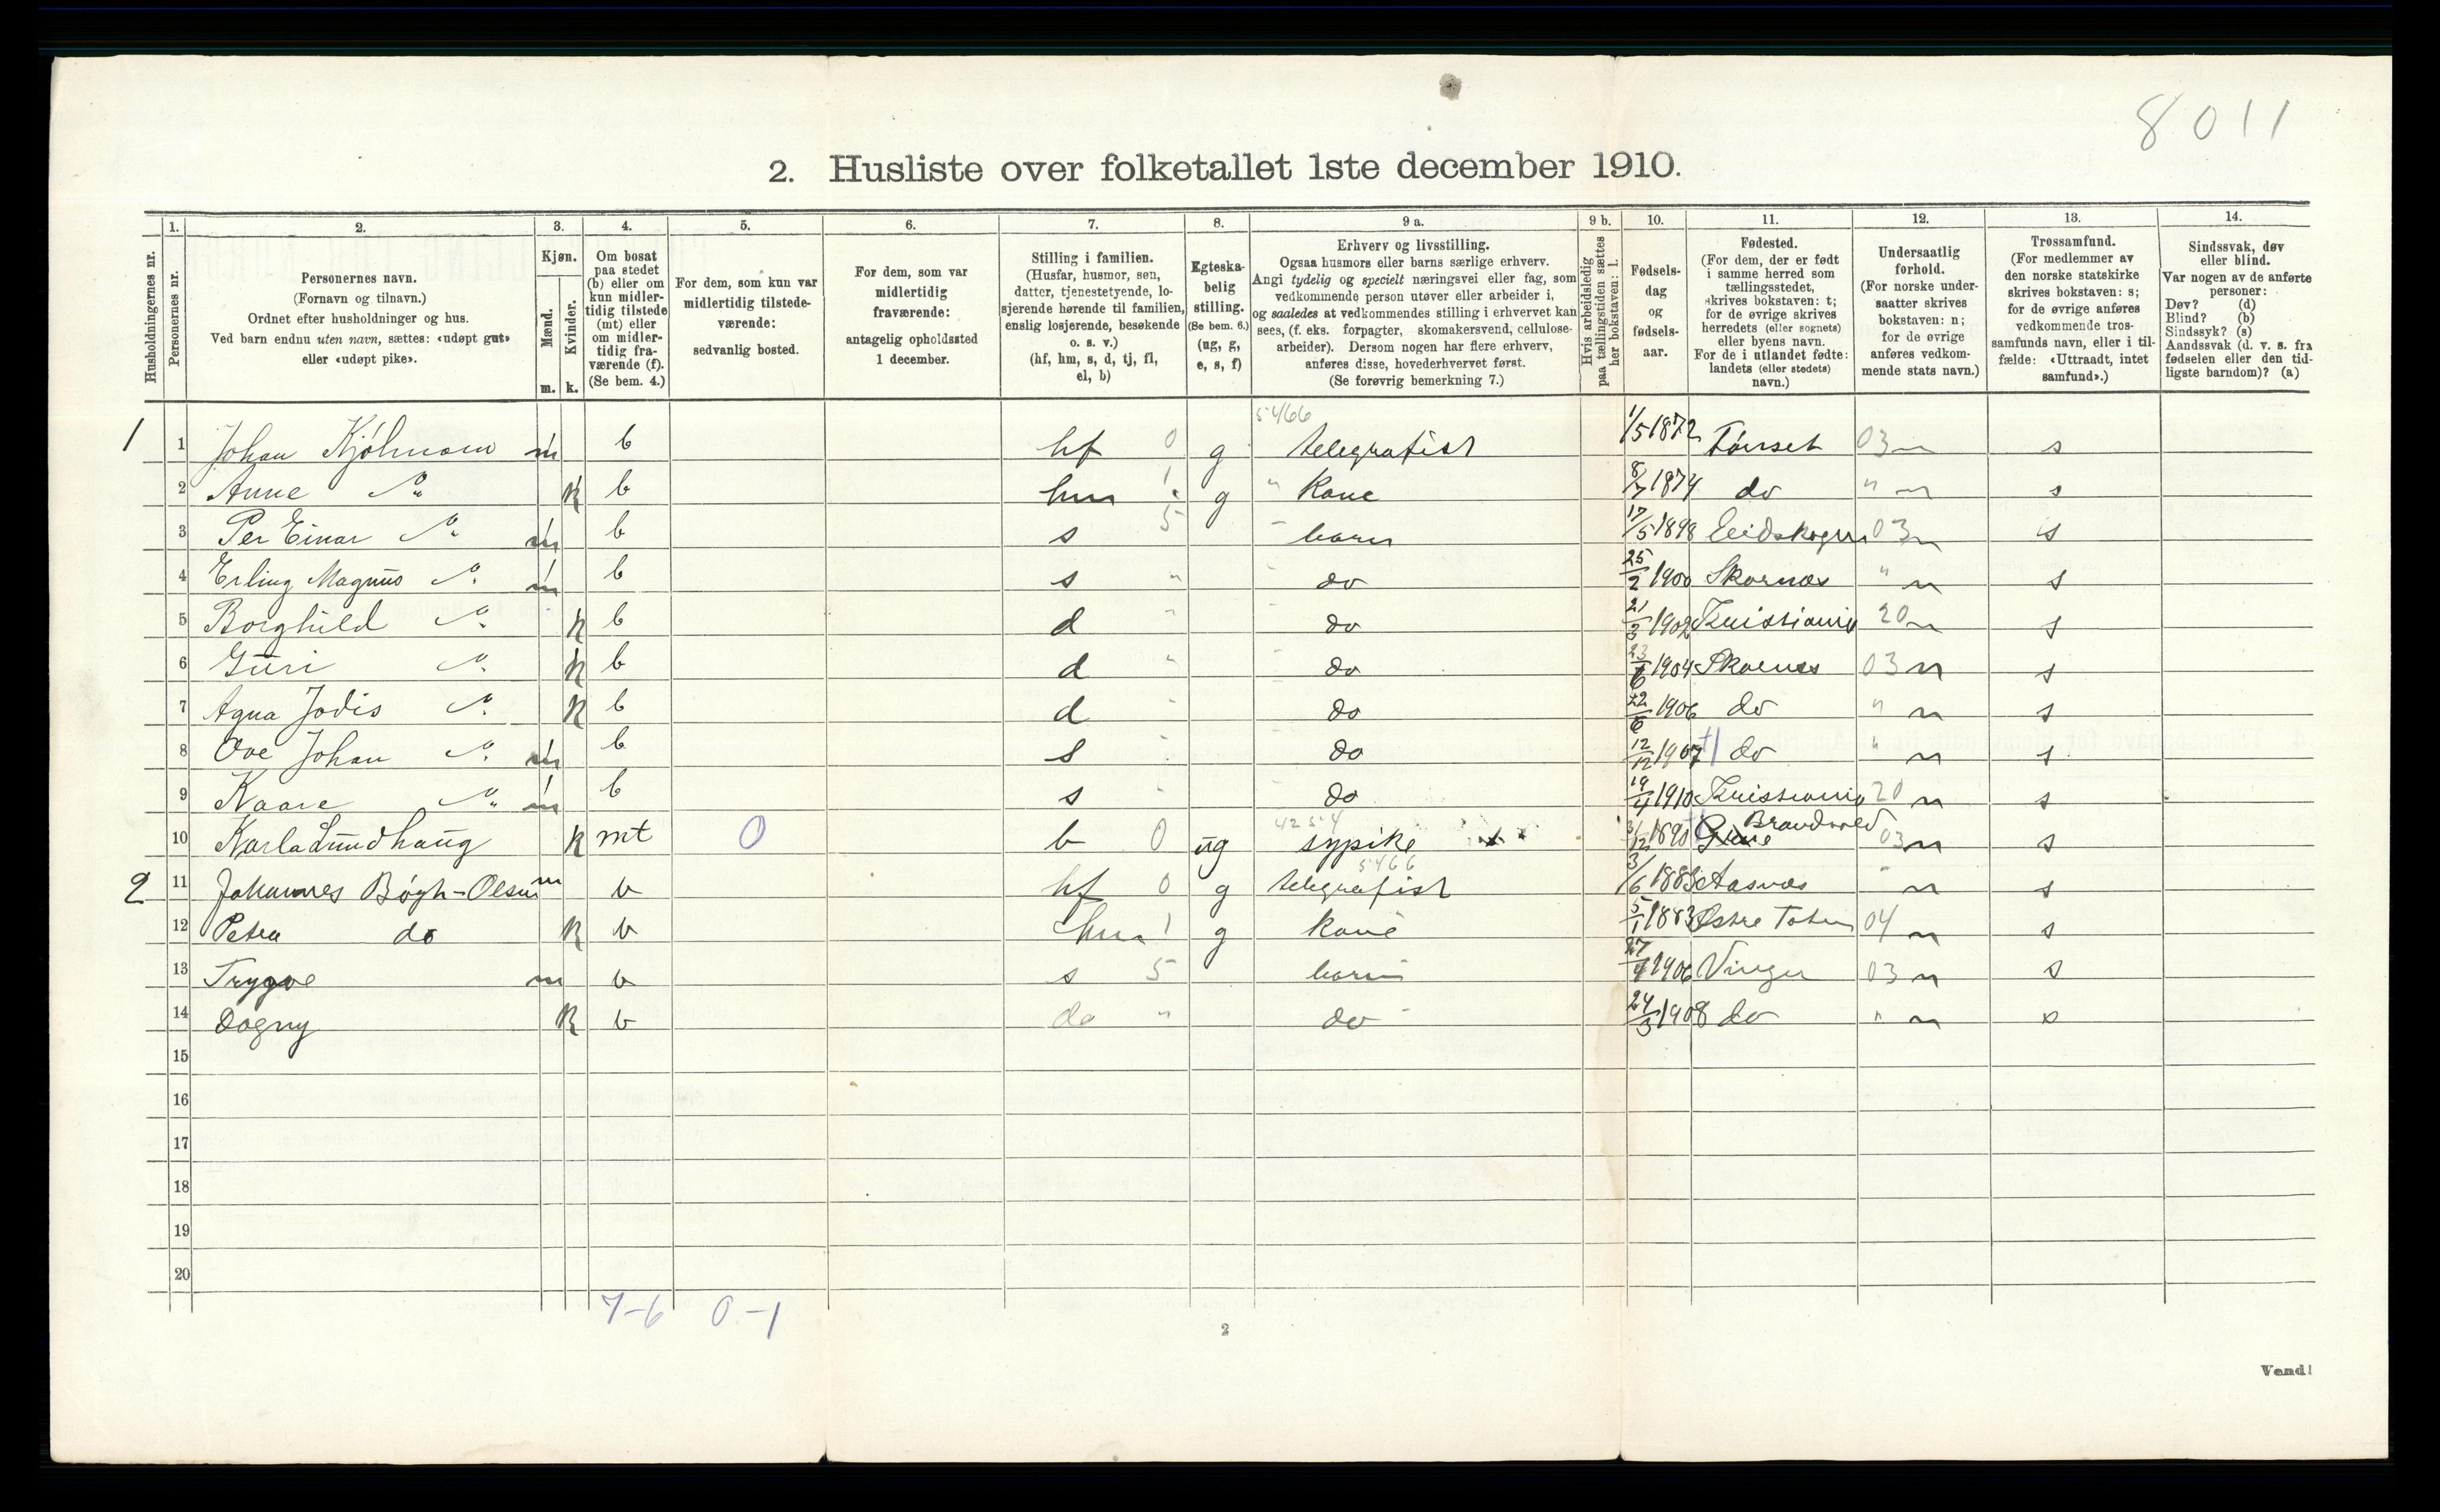 8011
2. Husliste over folketallet 1ste december 1910.
1. 2. 3. 4. 5. 6. 7. 8. 9 a. 9 b. 10. 11. 12. 13. 14.
Husholdningernes nr.
Personernes nr.
Personernes navn.
(Fornavn og tilnavn.)
Ordnet efter husholdninger og hus.
Ved barn endnu uten navn, sættes: «udøpt gut»
eller «udøpt pike».
Kjøn.
Mænd.
m.
Kvinder.
k.
Om bosat
paa stedet
(b) eller om
kun midler-
tidig tilstede
(mt) eller
om midler-
tidig fra-
værende (f).
(Se bem. 4.)
For dem, som kun var
midlertidig tilstede-
værende:
sedvanlig bosted.
For dem, som var
midlertidig
fraværende:
antagelig opholdssted
1 december.
Stilling i familien.
(Husfar, husmor, søn,
datter, tjenestetyende, lo-
sjerende hørende til familien,
enslig losjerende, besøkende
o. s. v.)
(hf, hm, s, d, tj, fl,
el, b)
Egteska-
belig
stilling.
(Se bem. 6.)
(ug, g,
e, s, f)
Erhverv og livsstilling.
Ogsaa husmors eller barns særlige erhverv.
Angi tydelig og specielt næringsvei eller fag, som
vedkommende person utøver eller arbeider i,
og saaledes at vedkommendes stilling i erhvervet kan
sees, (f. eks. forpagter, skomakersvend, cellulose-
arbeider). Dersom nogen har flere erhverv,
anføres disse, hovederhvervet først.
(Se forøvrig bemerkning 7.)
Hvis arbeidsledig
paa tællingstiden sættes
her bokstaven: l.
Fødsels-
dag
og
fødsels-
aar.
Fødested.
(For dem, der er født
i samme herred som
tællingsstedet,
skrives bokstaven: t;
for de øvrige skrives
herredets (eller sognets)
eller byens navn.
For de i utlandet fødte:
landets (eller stedets)
navn.)
Undersaatlig
forhold.
(For norske under-
saatter skrives
bokstaven: n;
for de øvrige
anføres vedkom-
mende stats navn.)
Trossamfund.
(For medlemmer av
den norske statskirke
skrives bokstaven: s;
for de øvrige anføres
vedkommende tros-
samfunds navn, eller i til-
fælde: «Uttraadt, intet
samfund».)
Sindssvak, døv
eller blind.
Var nogen av de anførte
personer:
Døv? (d)
Blind? (b)
Sindssyk? (s)
Aandssvak (d. v. s. fra
fødselen eller den tid-
ligste barndom)? (a)
5466
1 1 Johan Kjølmoen m b hf 0 g telegrafist 1/5 1872 Tønset 03 n s
2 Anne " k b hm 1 g " Kone 8/7 1874 do " n s
3 Per Einar " m b s 5 barn 17/5 1898 Eidskogen 03 n s
4 Erling Magnus " m b s " do 25/2 1900 Skarnæs " n s
5 Borghild " k b d " do 21/3 1902 Kristiania 20 n s
6 Guri " k b d " do 23/6 1904 Skarnes 03 n s
7 Agna Jodis " k b d " do 22/6 1906 do " n s
8 Ove Johan " m b s " do 12/12 1907 do " n s
9 Kaare " m b s " do 19/4 1910 Kristiania 20 n s
4254
10 Karla Lundhaug k mt 0 b 0 ug sypike 3/12 1890 Brandvold 03 n s
5466
2 11 Johannes Bøgh-Olsen m b hf 0 g telegrafist 3/6 1883 Aasnæs n s
12 Petra do k b hm 1 g kone 5/1 1883 Østre Toten 04 n s
13 Trygve m b s 5 barn 27/4 1906 Vinger 03 n s
14 Dagny k b do " do 24/3 1908 do " n s
15
16
17
18
19
20
7-6 0-1
2
Vend!